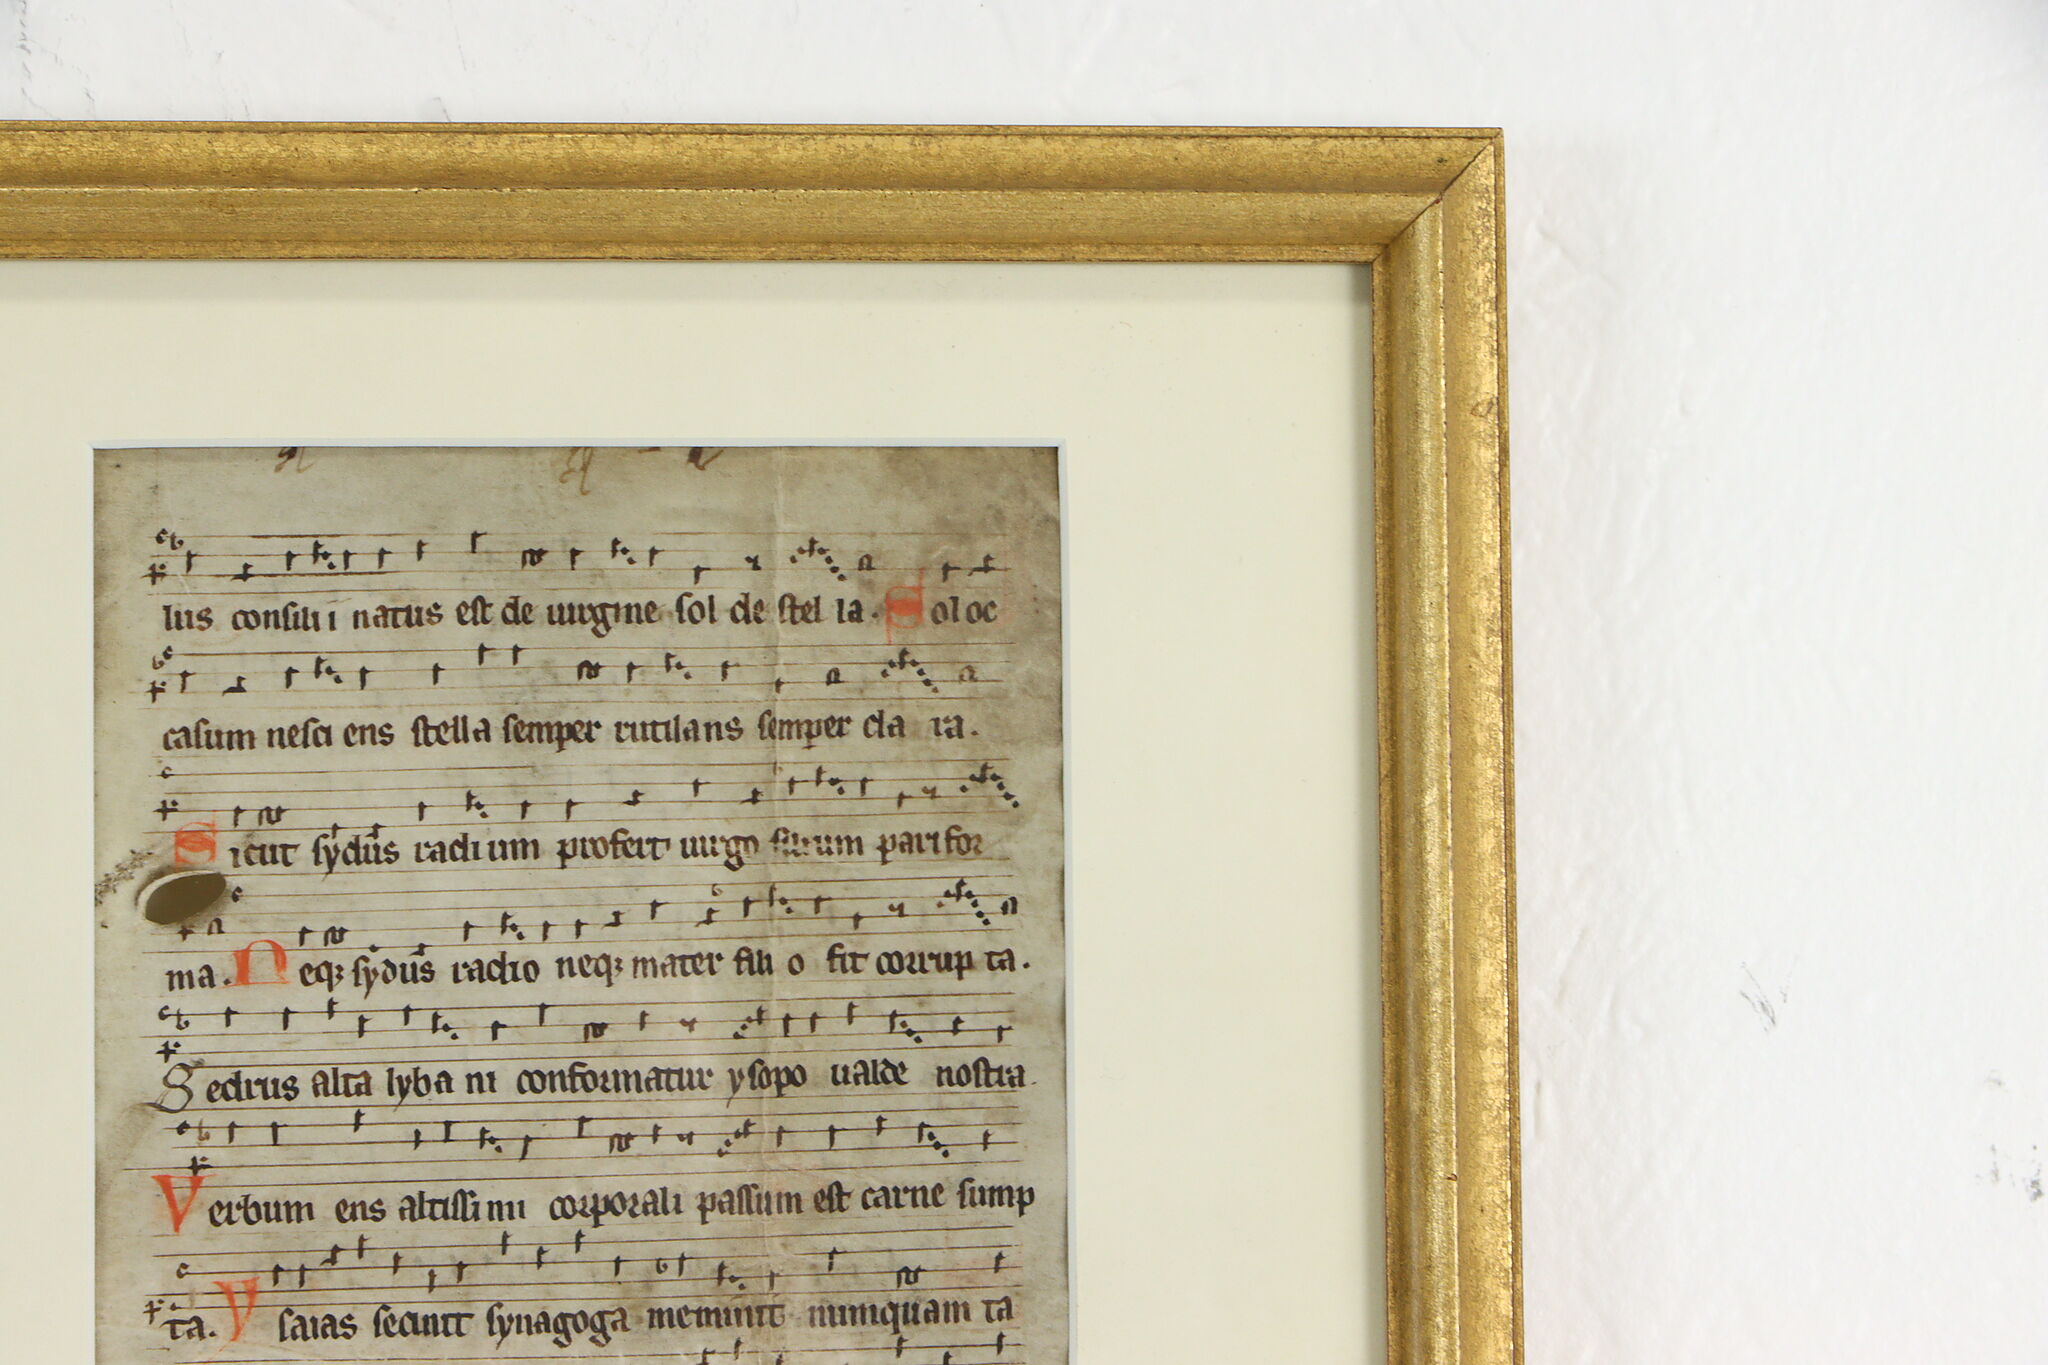 lus consili i natus est de uirgine sol de stel la. Sol oc
casum nesci ens stella semper rutilans semper cla ra.
Sicut sydus radi um profert uirgo filium pari for
ma. Neq; sydus radio neq; mater fili o fit corrup ta.
Cedrus alta lyba ni conformatur ysopo ualde nostra.
Verbum ens altissi mi corporali passum est carne sump
ta. Ysaias cecinit synagoga meminit numquam ta